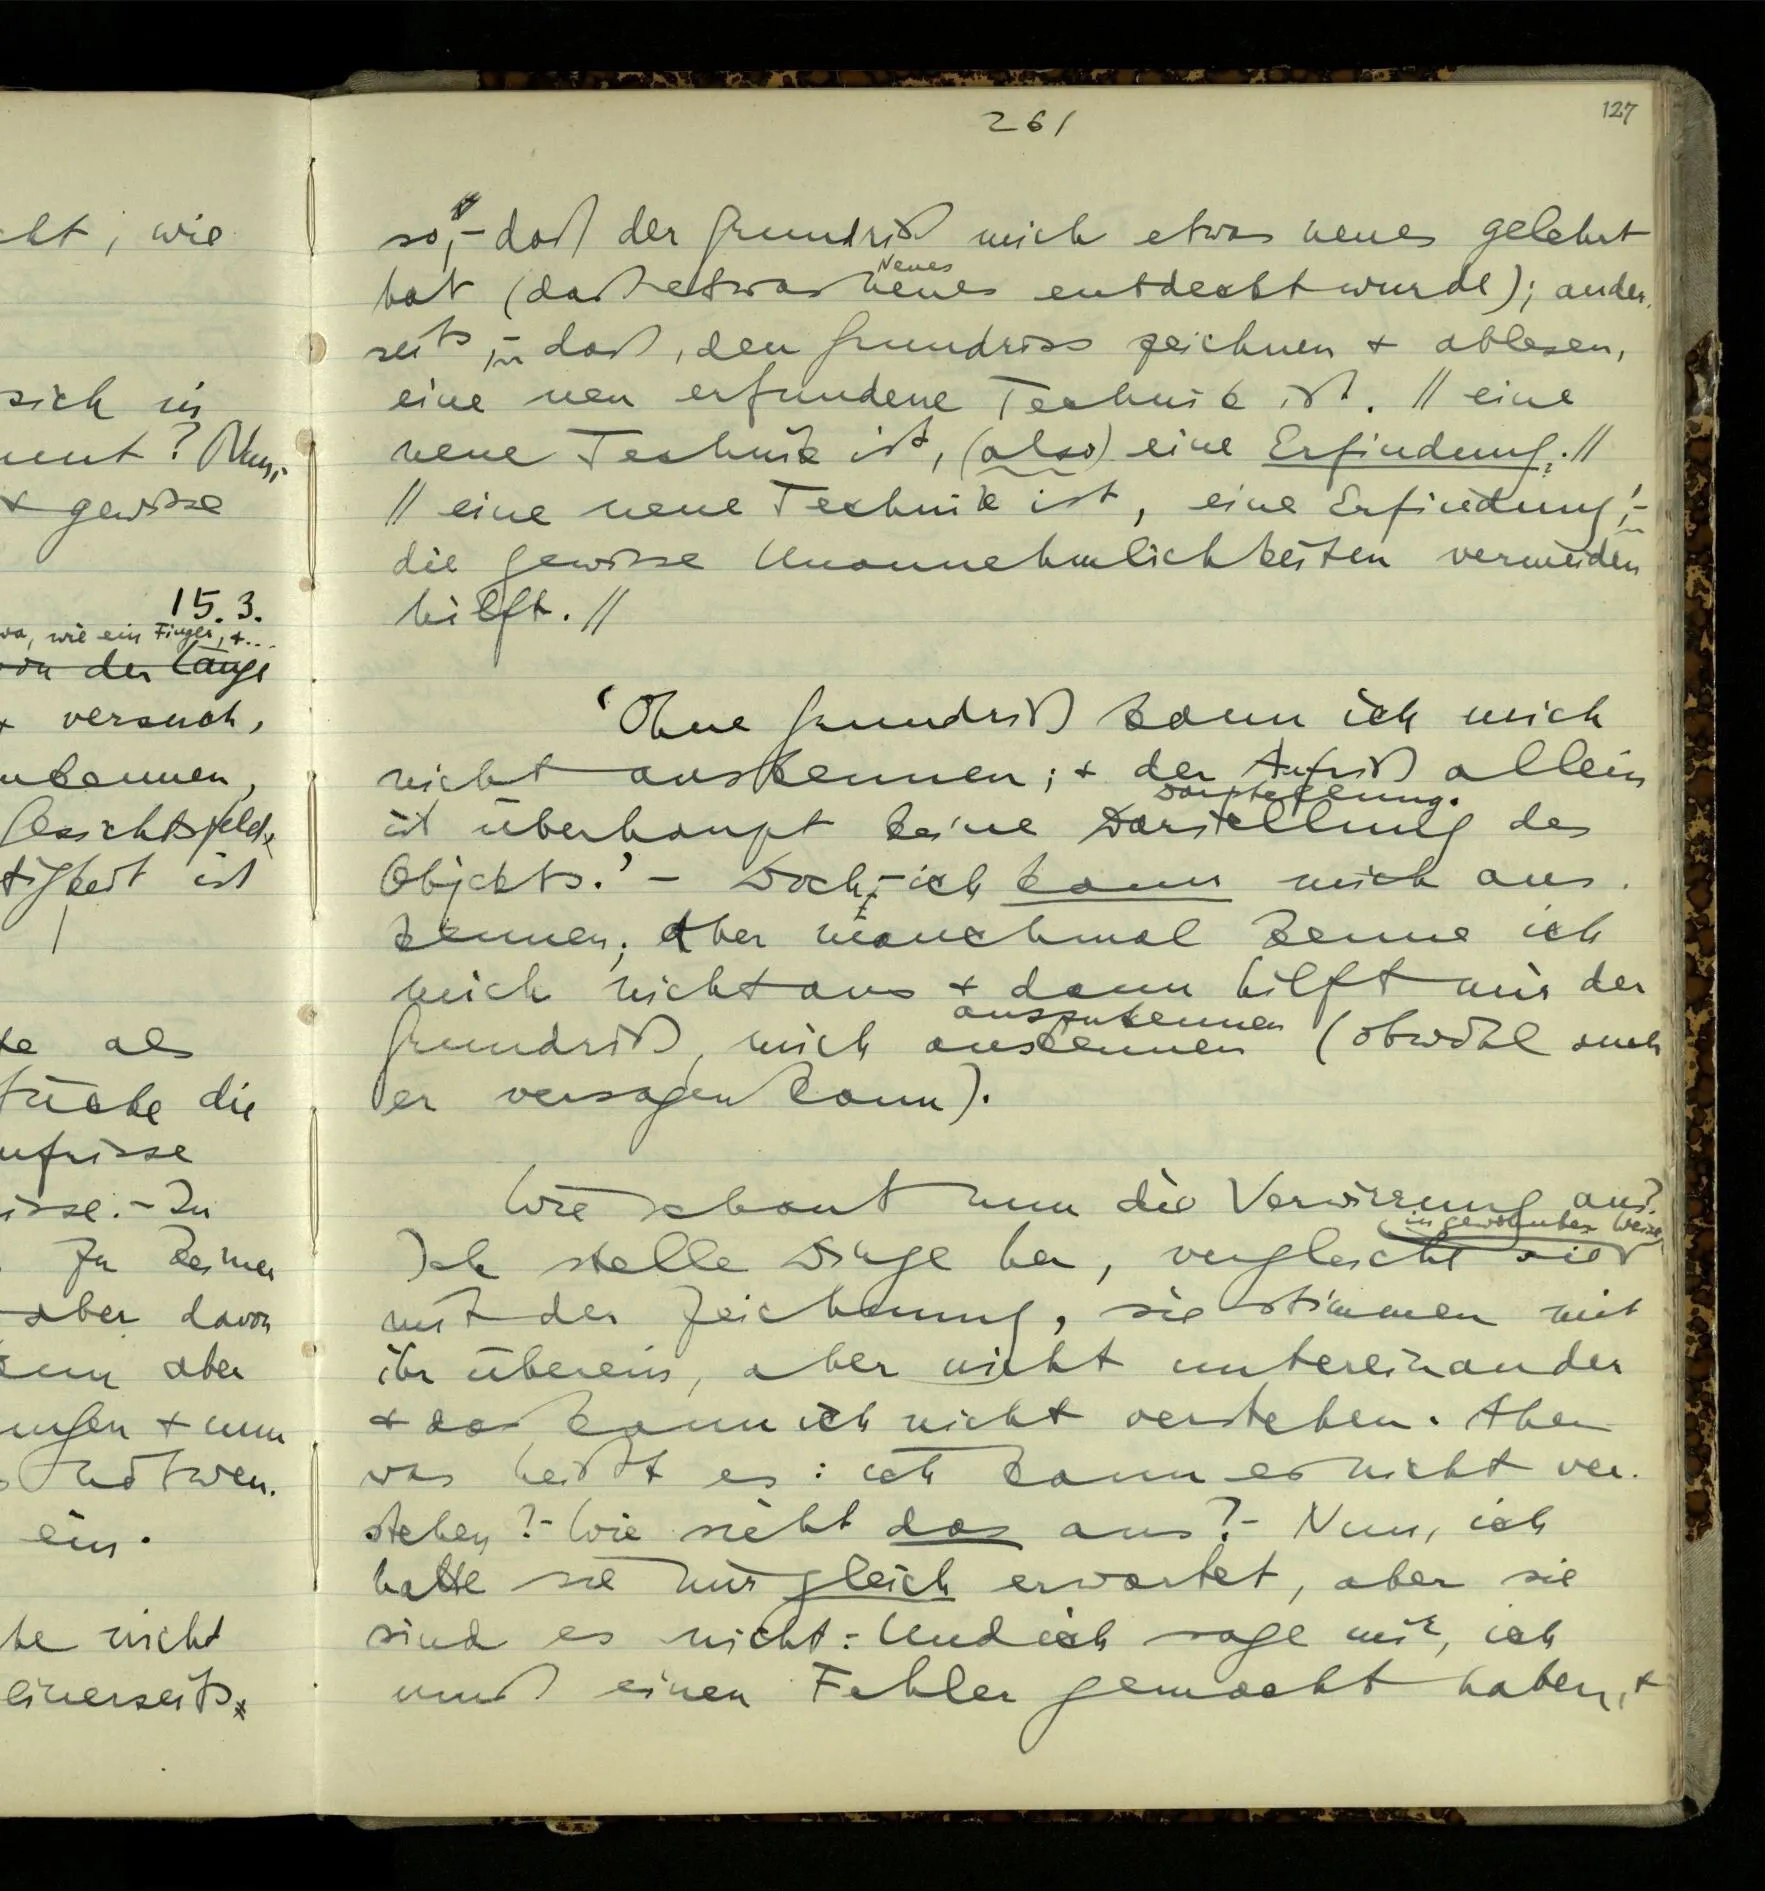 cht, wie
sich in
? Nun,
+ gewisse
15.3.
wie ein Finger, +...
von der Länge
+ versuch,
Gesichtsfeld
ist
als
die
ufrisse
isse. – Zu
keiner
aber davon
aber
ungen + nun
notwen-
ein.
nicht
einerseits
261
127
so, – daß der Grundriß mich etwas neues gelehrt
Neues
hat (daß etwas neues entdeckt wurde); ander-
seits, – daß, den Grundriss zeichnen + ablesen,
eine neu erfundene Technik ist. // eine
neue Technik ist, (also) eine Erfindung. //
// eine neue Technik ist, eine Erfindung, –
die gewisse Unannehmlichkeiten vermeiden
hilft. //
‘Ohne Grundriß kann ich mich
nicht auskennen; + der Aufriß allein
Darstellung.
ist überhaupt keine Darstellung des
Objekts.’ – Doch, – ich kann mich aus-
kennen; aber manchmal kenne ich
mich nicht aus + dann hilft mir der
auszukennen
Grundriß, mich auskennen (obwohl auch
er versagen kann).
Wie schaut nun die Verwirrung aus?
in gewohnter Weise
Ich stelle Dinge her, vergleiche sie
mit der Zeichnung, sie stimmen mit
ihr überein, aber nicht untereinander
+ das kann ich nicht verstehen. Aber
was heißt es: ich kann es nicht ver-
stehen? – Wie sieht das aus? – Nun, ich
hatte sie mir gleich erwartet, aber sie
sind es nicht: Und ich sage mir, ich
muß einen Fehler gemacht haben, +